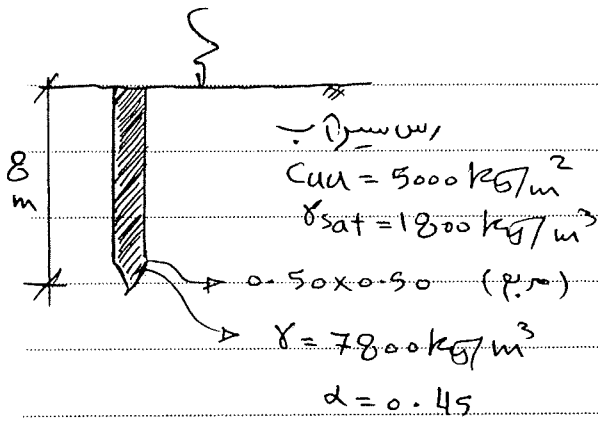 رس سیراب
Cuu = 5000 kg/m²
γsat = 1800 kg/m³
8 m
0.50×0.50 (مربع)
γ = 7800 kg/m³
α = 0.45